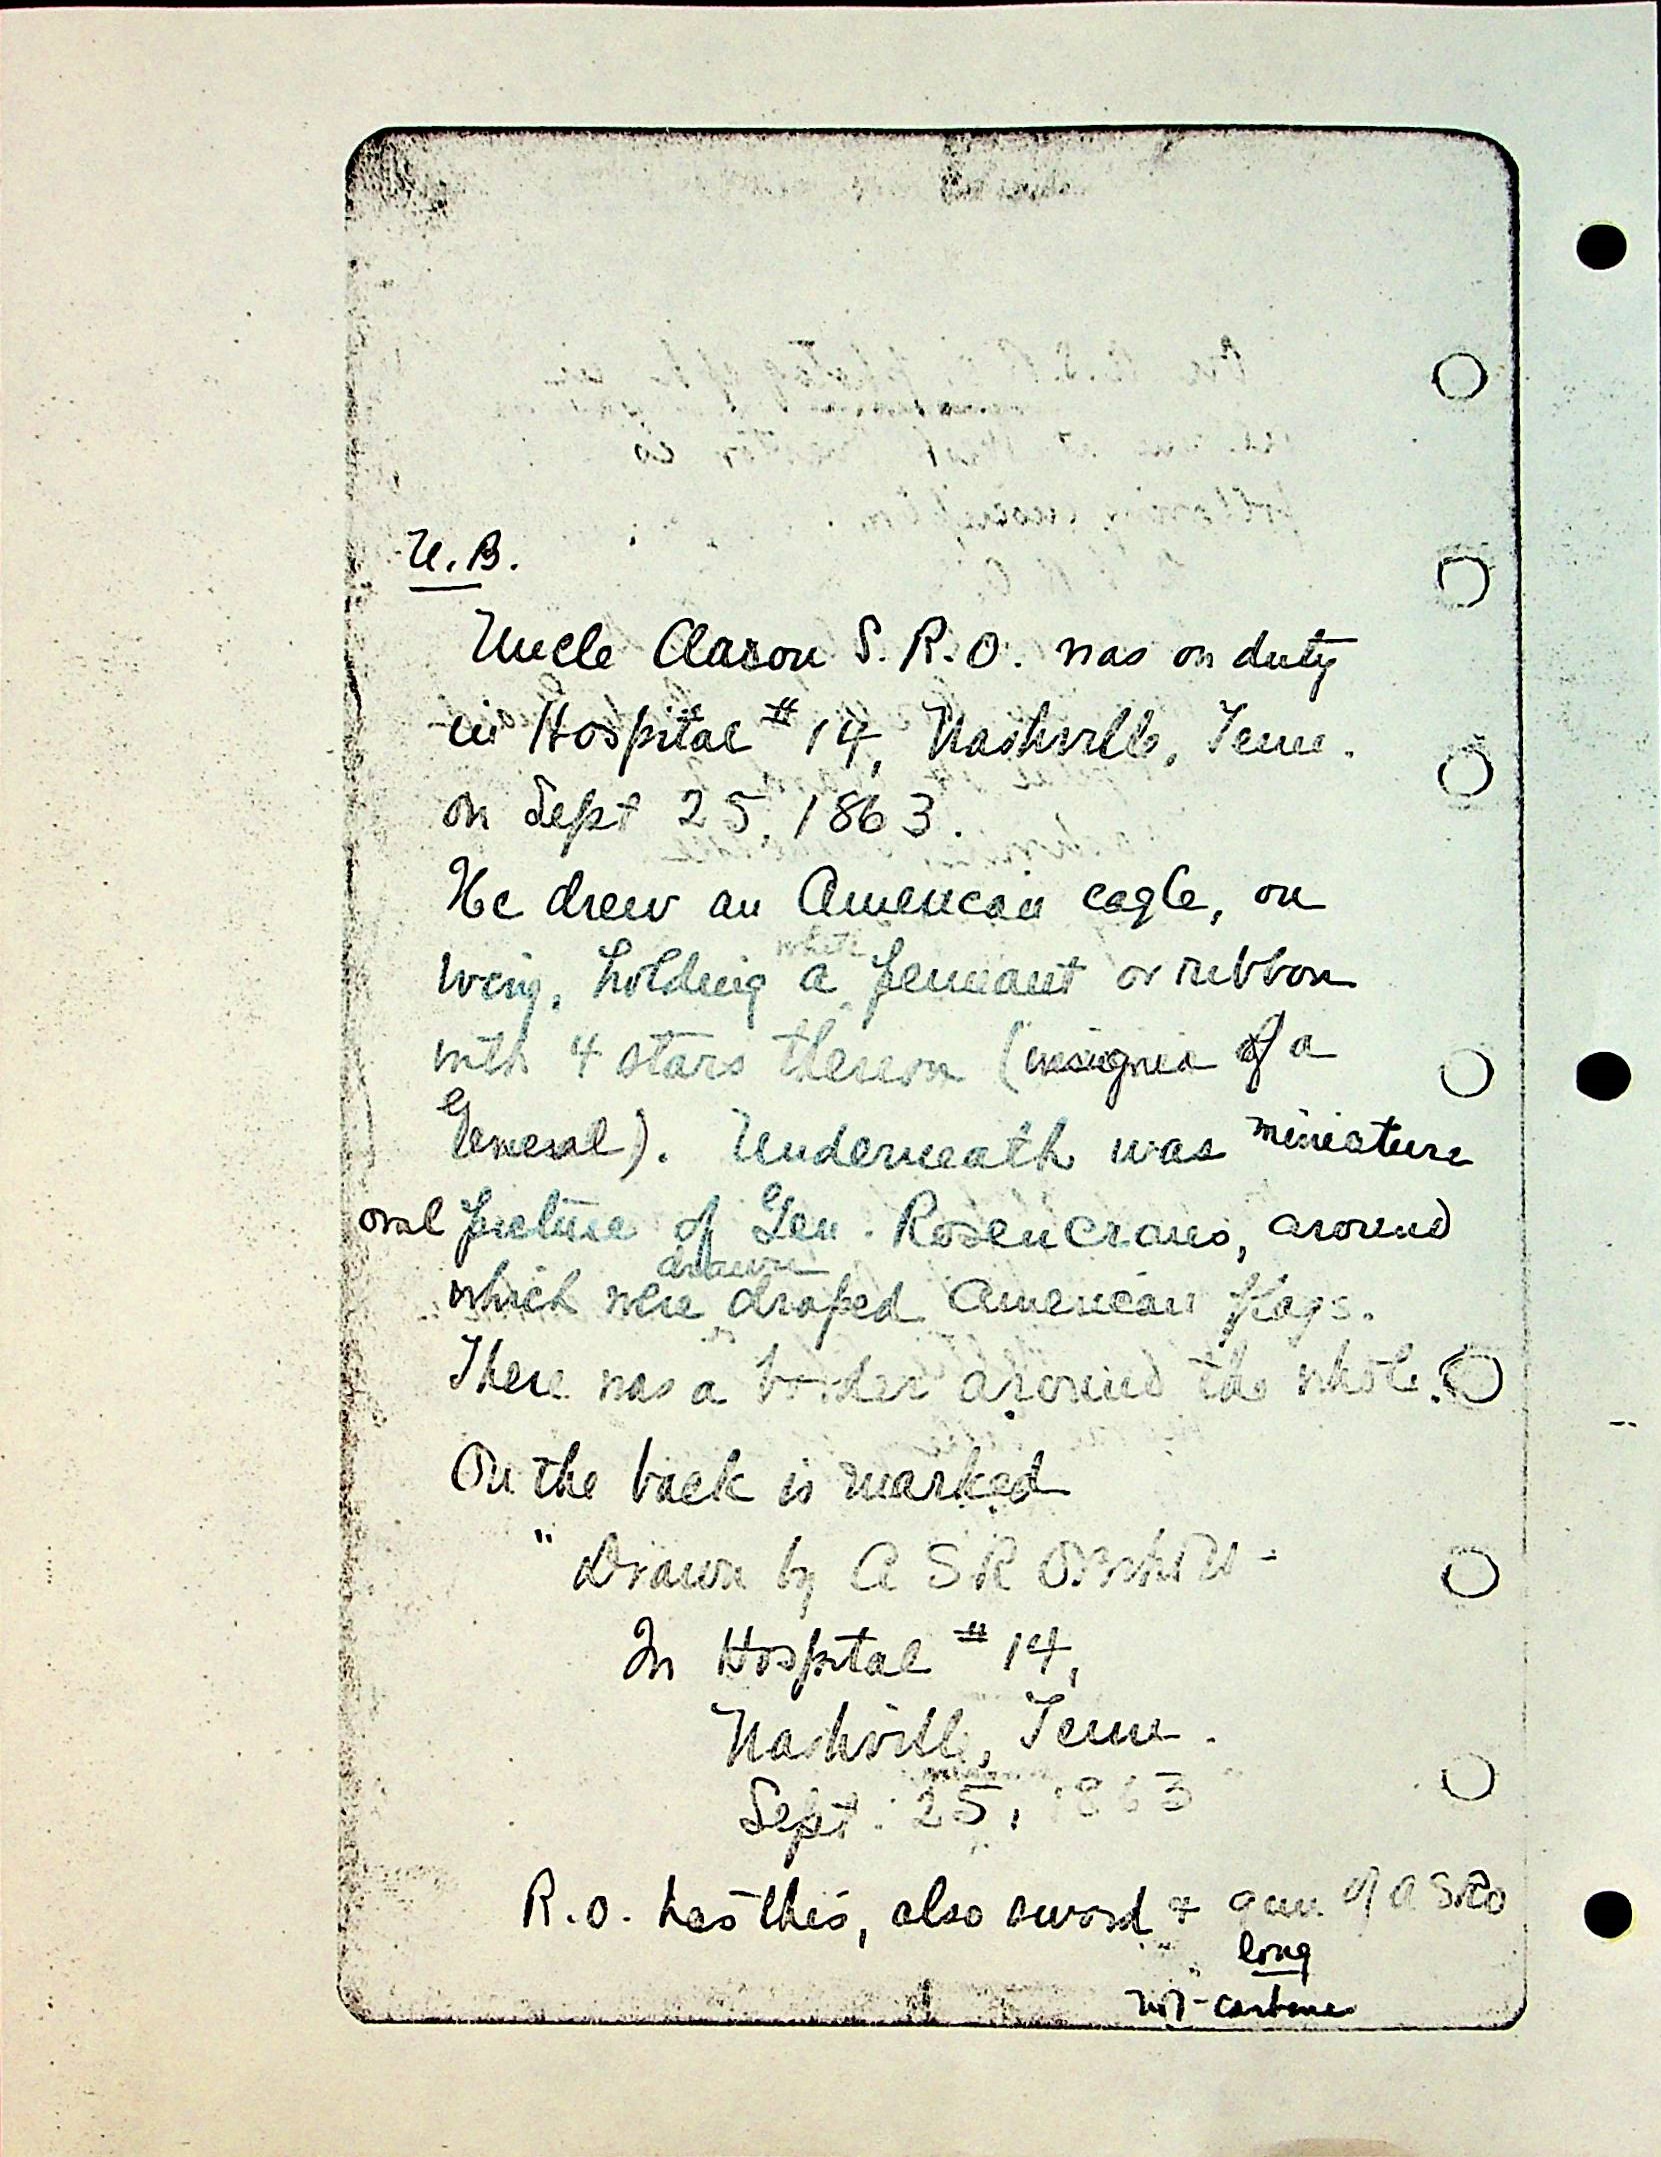 N.B.
Uncle Aason S.R.O. was on duty
in Hospital #14, Nashville, Tenn.
on Sept 25, 1863.
He drew an American eagle, on
wing, holding a white pennant or ribbon
with 4 stars thereon (insignia of a
General). Underneath was miniature
oval picture of Gen. Rosencrans, around
which were drawn draped American flags.
There was a border around the whole.
On the back is marked
"Drawn by A S R
In Hospital #14,
Nashville, Tenn.
Sept. 25, 1863"
R.O. has this, also sword & gun of ASRO
long
not carbine